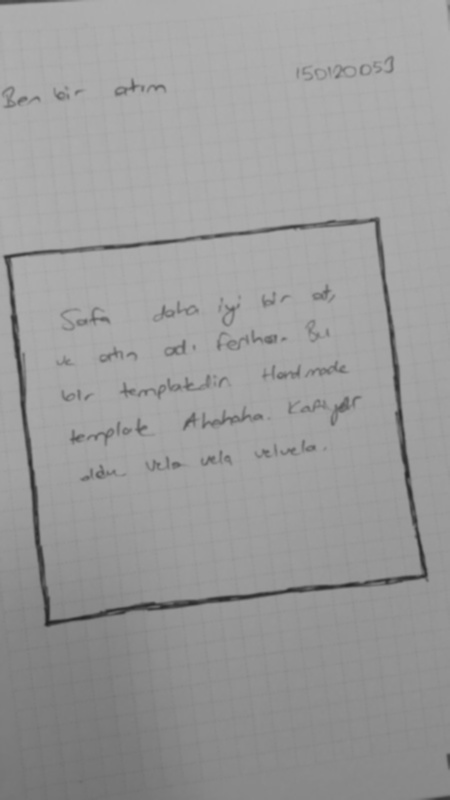 Ben bir atım
150120053
Safa daha iyi bir at,
ve atın adı Feriha. Bu
bir templatedir. Handmade
template Ahahaha.
oldu vela vela velvela.